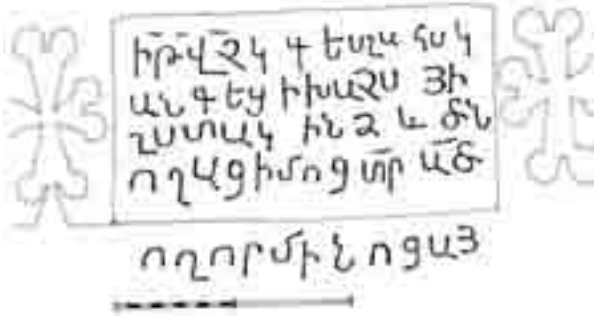 ի թվ ՉԿԳ ես
անգեց ի խաչս յի
շատակ ինձ և ծն
ողաց իմոց տր ած
ողորմի նոցայ